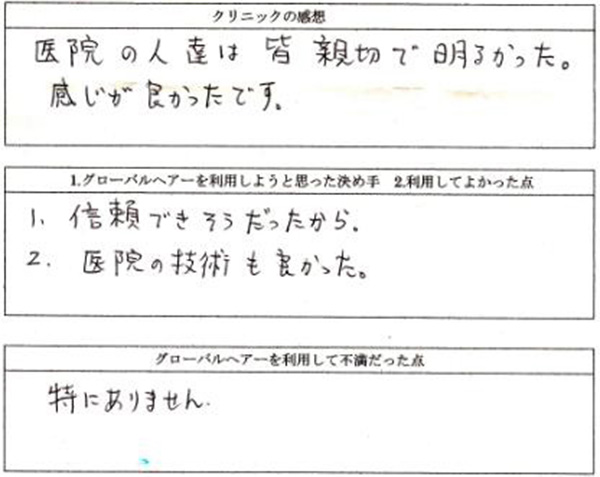 クリニックの感想
医院の人達は皆親切で明るかった。
感じが良かったです。
1.グローバルヘアーを利用しようと思った決め手 2.利用してよかった点
1. 信頼できそうだったから.
2. 医院の技術も良かった。
グローバルヘアーを利用して不満だった点
特にありません.